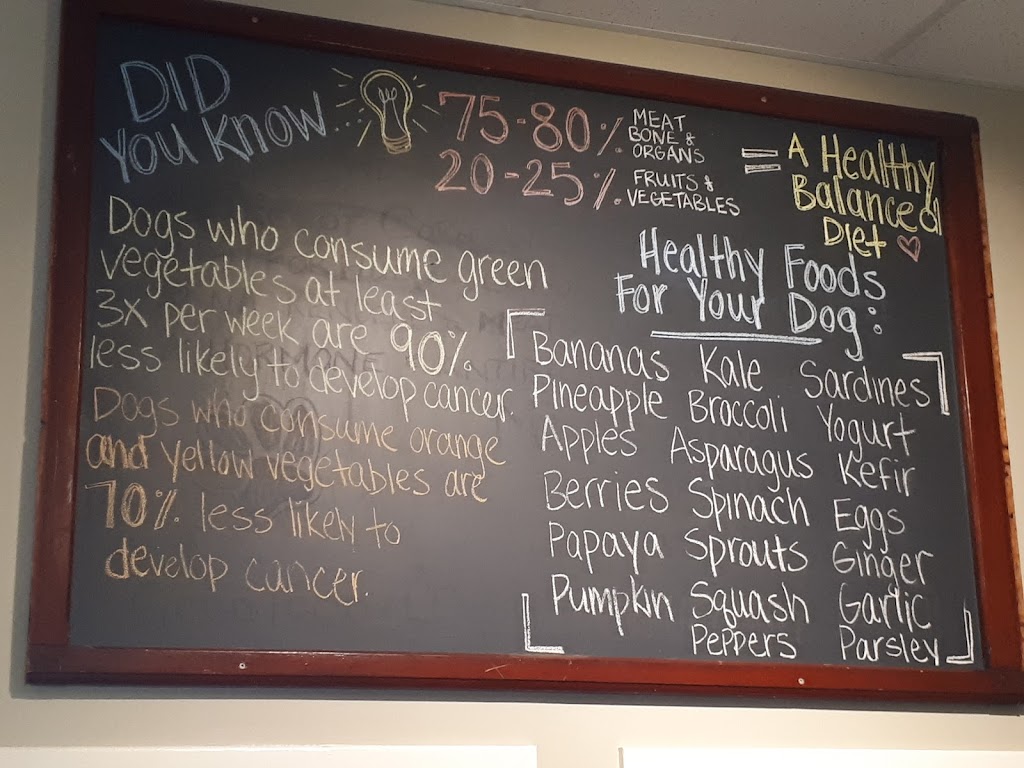 DID
YOU KNOW...
75-80% MEAT
BONE &
ORGANS
20-25% FRUITS &
VEGETABLES
= A Healthy
Balanced
Diet
Dogs who consume green
vegetables at least
3x per week are 90%
less likely to develop cancer.
Dogs who consume orange
and yellow vegetables are
70% less likely to
develop cancer.
Healthy Foods
For Your Dog:
Bananas Kale Sardines
Pineapple Broccoli Yogurt
Apples Asparagus Kefir
Berries Spinach Eggs
Papaya Sprouts Ginger
Pumpkin Squash Garlic
Peppers Parsley